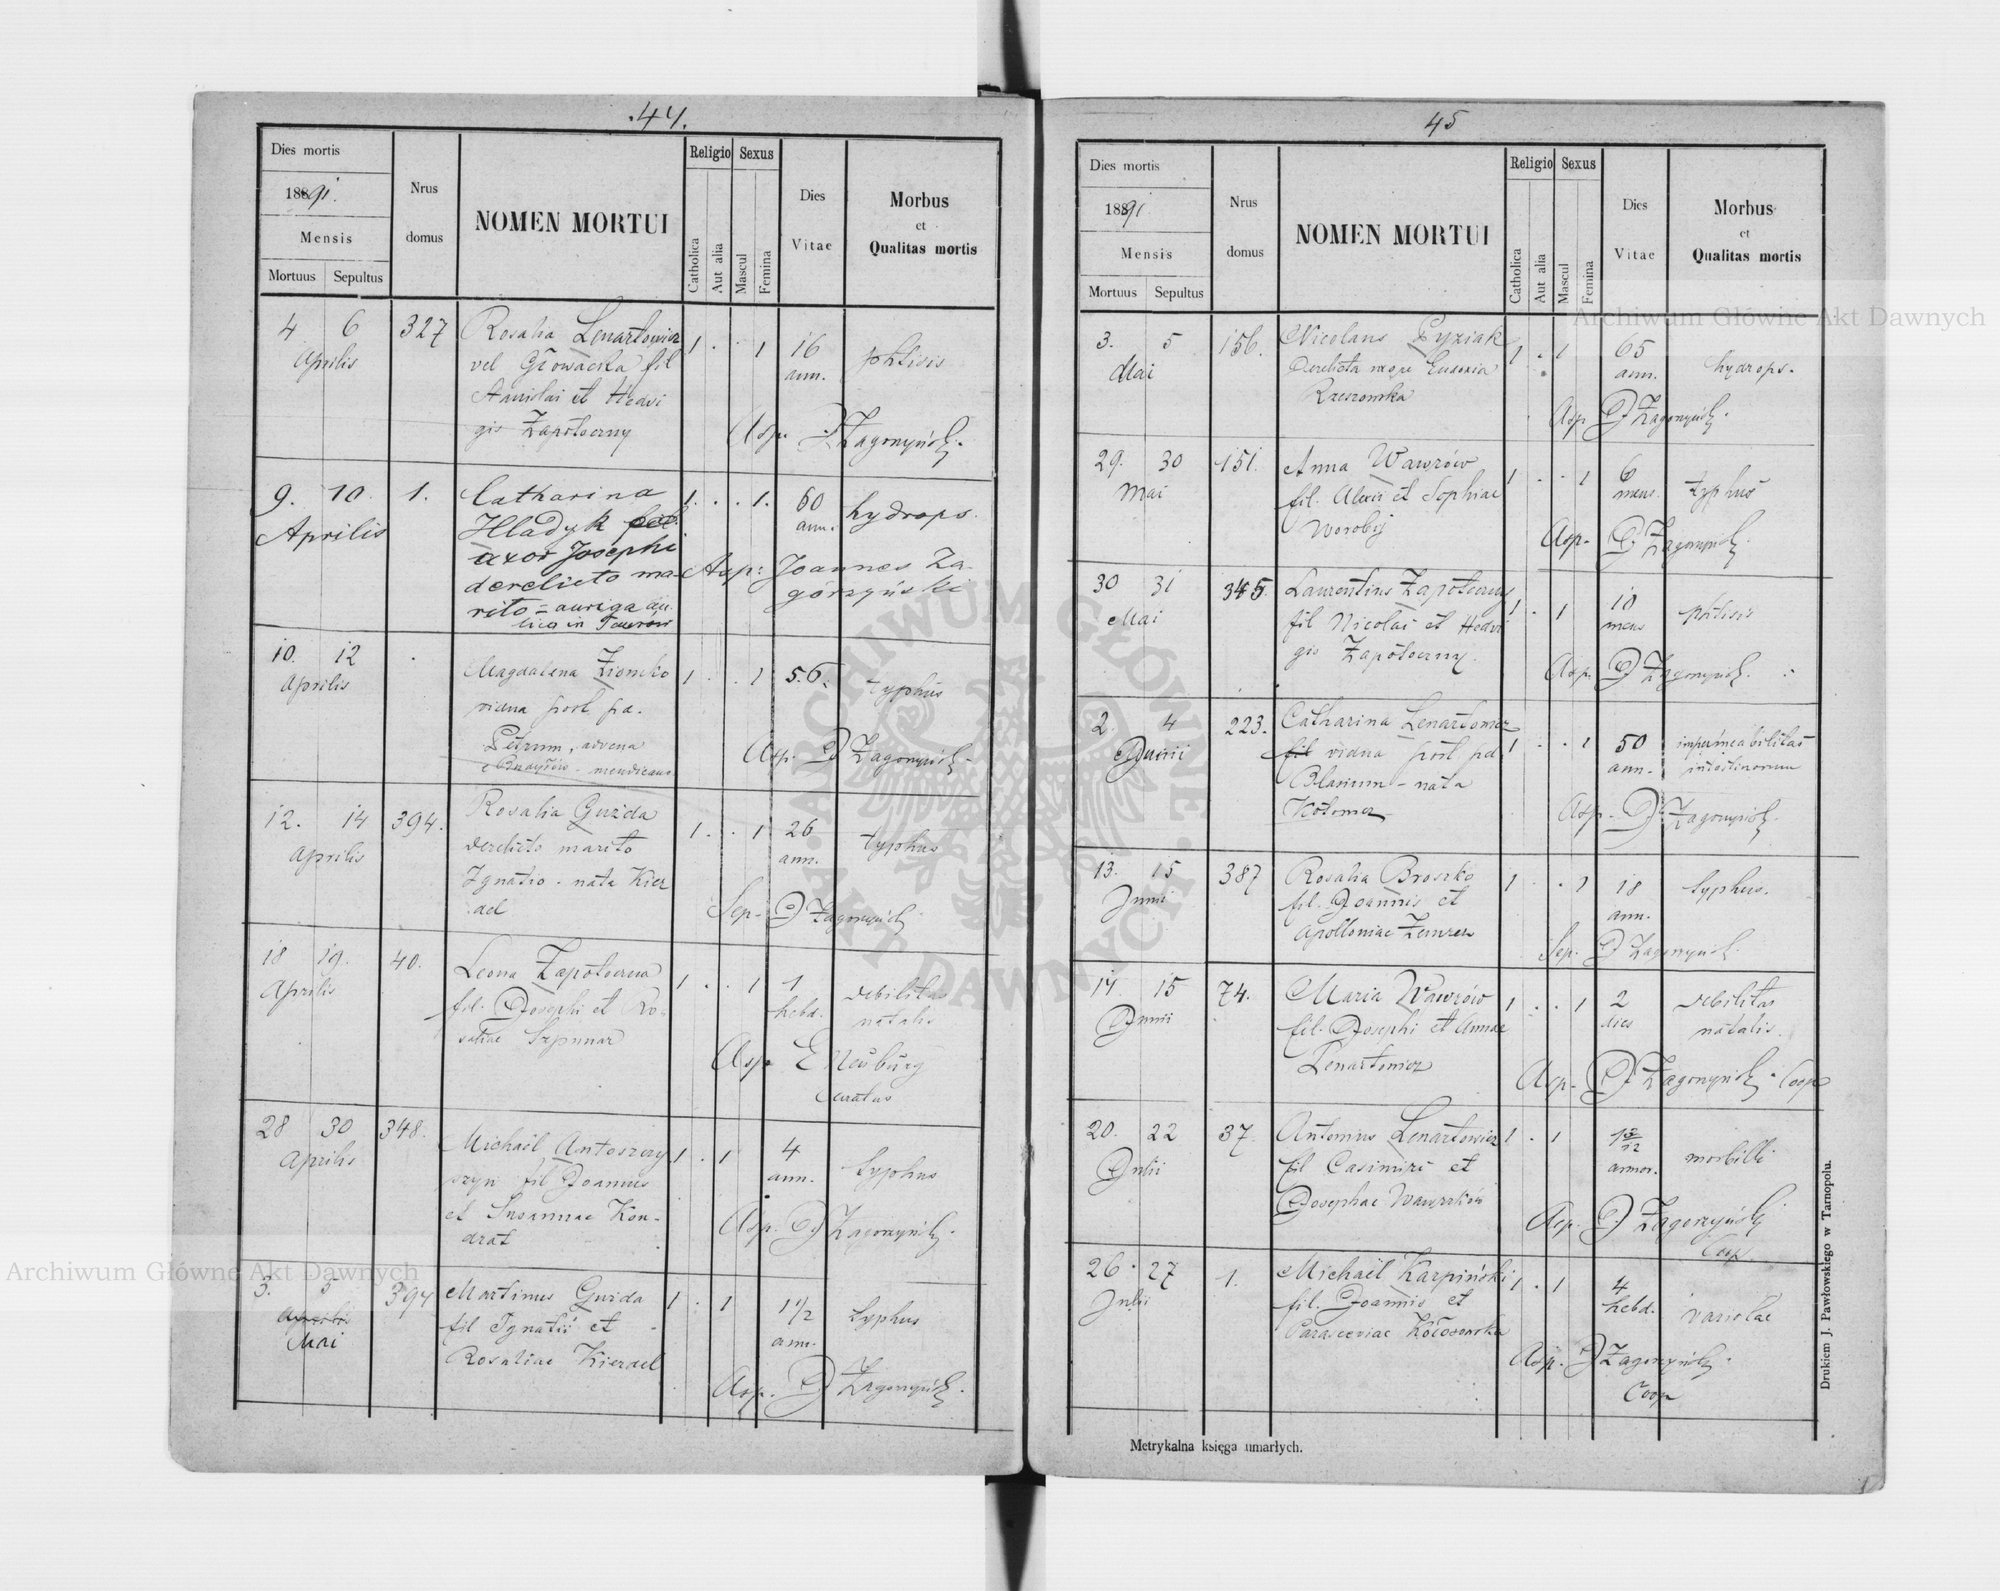 .44.
Dies mortis
1891.
Mensis
Mortuus Sepultus
Nrus
domus
NOMEN MORTUI
Religio
Catholica
Aut alia
Sexus
Mascul
Femina
Dies
Vitae
Morbus
et
Qualitas mortis
4 6 327 Rosalia Lenartowicz 1 . . 1 16 phtisis
Aprilis vel Głowacka fil ann.
Stanislai et Hedvi
gis Zapotoczny Asp. J Zagórzyński.
9. 10. 1. Catharina 1. . . 1. 60 hydrops.
Aprilis Hladyk ann.
uxor Josephi
derelicto ma- Asp: Joannes Za-
rito = auriga au- górzyński
lica in
10. 12 . Magdalena Zionczko 1 . . 1 56. typhus
Aprilis vidua post pd.
Petrum, advena Asp. J Zagórzyński.
mendicans
12. 14 394. Rosalia Guzda 1 . . 1 26 typhus
Aprilis derelicto marito ann.
Ignatio - nata Kier
del Sep. J Zagórzyński.
18 19. 40. Leona Zapotoczna 1 . . 1 1 debilitas
Aprilis fil. Josephi et Ro- hebd. natalis
saliae Szpunar Asp E Neuburg
Curatus
28 30 348. Michaël Antoszczy 1 . 1 4 typhus
Aprilis szyn fil Joannis ann.
et Susannae Kon-
drat Asp. J Zagórzyński.
3. 5 394 Martinus Guzda 1 . 1 1 1/2 typhus
Aprilis fil Ignatii et ann.
Mai Rosaliae Kierdel
Asp. J Zagórzyński.
45
Dies mortis
1891
Mensis
Mortuus Sepultus
Nrus
domus
NOMEN MORTUI
Religio
Catholica
Aut alia
Sexus
Mascul
Femina
Dies
Vitae
Morbus
et
Qualitas mortis
3. 5 156. Nicolaus Pyziak 1 . 1 65 hydrops.
Mai Derelicta uxore Eudoxia ann.
Rzeszowska Asp J Zagórzyński.
29. 30 151. Anna Wawrów 1 . . 1 6 typhus
Mai fil. Alexii et Sophiae mens.
Worobij Asp. J Zagórzyński.
30 31 345. Laurentius Zapotoczny 1 . 1 10 phtisis
Mai fil Nicolai et Hedvi mens
gis Zapotoczny. Asp. J Zagórzyński.
2. 4 223. Catharina Lenartowicz 1 . . 1 50 impermeabilitas
Junii fil vidua post pd ann. intestinorum
Blasium - nata
Kotowicz Asp. J Zagórzyński.
13. 15 387 Rosalia Broszko 1 . . 1 18 typhus.
Junii fil. Joannis et ann.
Apolloniae Sep. J Zagórzyński.
14. 15 74. Maria Wawrów 1 . . 1 2 debilitas
Junii fil. Josephi et Annae dies natalis.
Lenartowicz Asp. J Zagórzyński Coop
20. 22 37 Antonius Lenartowicz 1 . 1 1 3/12 morbilli
Julii fil Casimiri et annor.
Josephae Wawrzków Asp. J Zagórzyński
Coop.
26. 27 1. Michaël Karpiński 1 . 1 4 variolae
Julii fil. Joannis et hebd.
Parasceviae Kołosowska Asp. J Zagórzyński.
Coop
Metrykalna księga umarłych.
Drukiem J. Pawłowskiego w Tarnopolu.
Archiwum Główne Akt Dawnych
Archiwum Główne Akt Dawnych
Archiwum Główne Akt Dawnych
· ARCHIWUM GŁÓWNE · AKT DAWNYCH